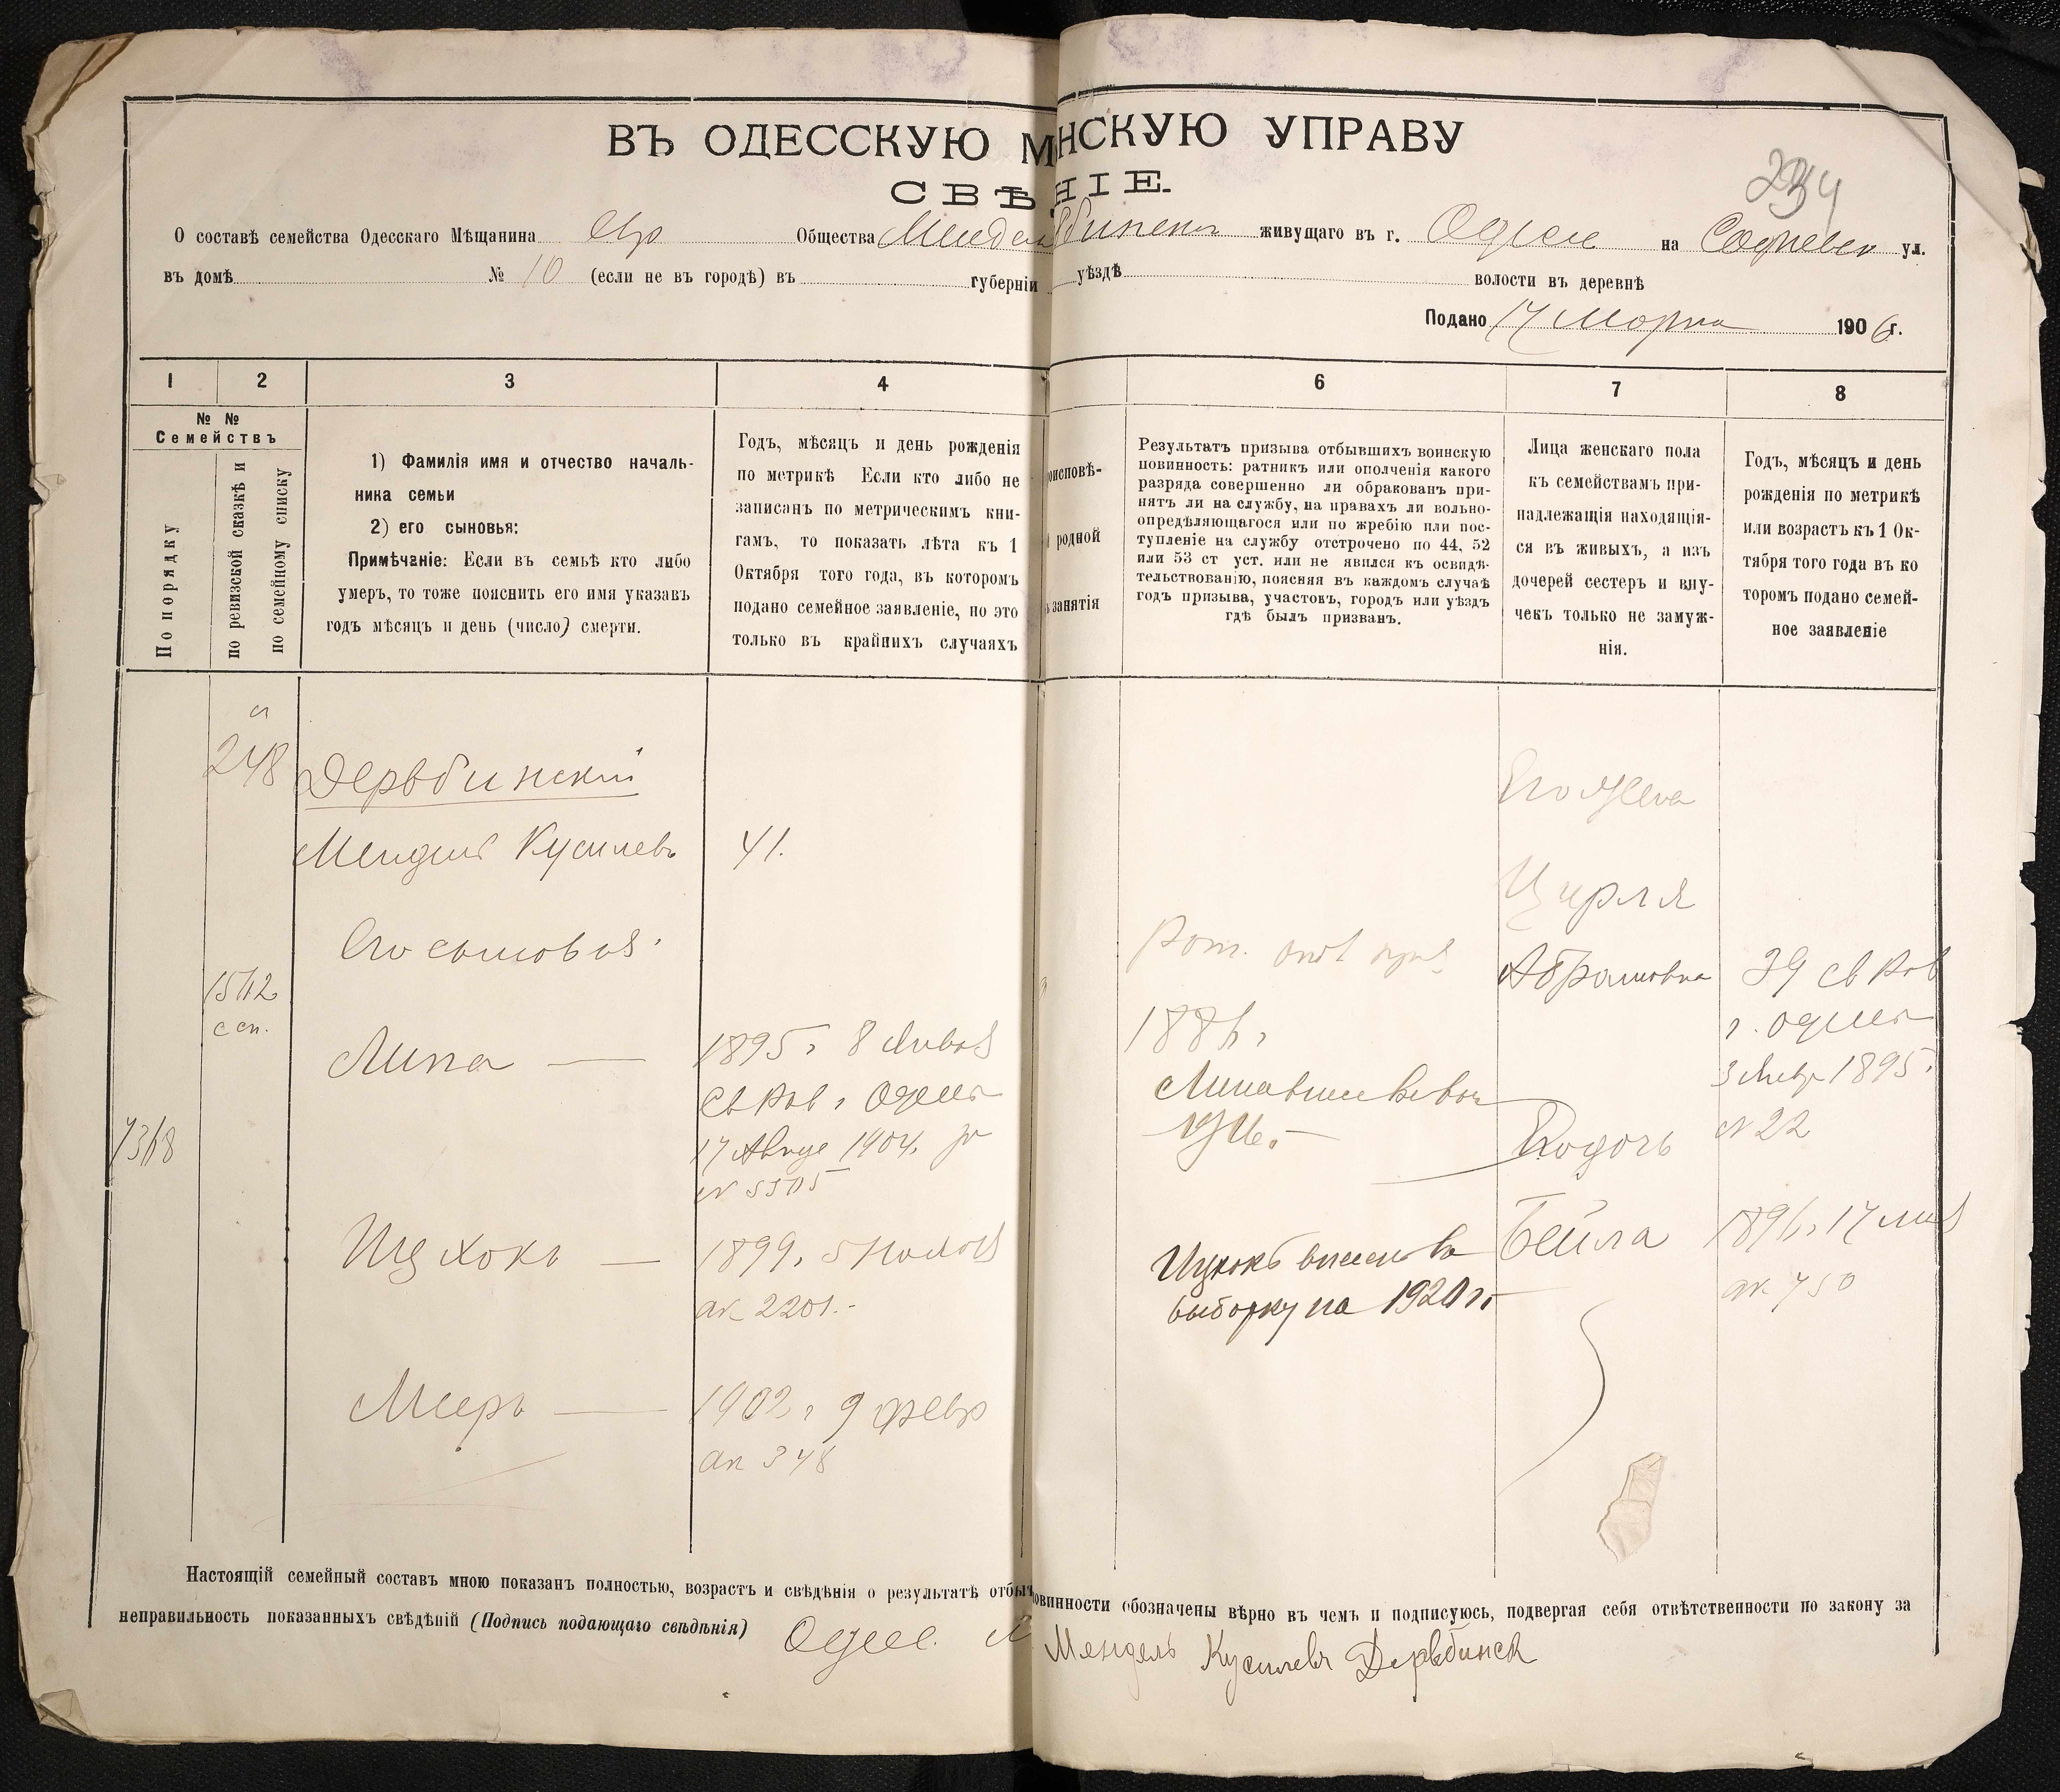 ВЪ ОДЕССКУЮ М НСКУЮ УПРАВУ
СВѢ НІЕ.
234
О составѣ семейства Одесскаго Мѣщанина Евр Общества Мендел бинскаго живущаго въ г. Одессе на Софіевск ул.
въ домѣ № 10 (если не въ городѣ) въ губерніи уѣздѣ волости въ деревнѣ
Подано 17 Марта 1906 г.
1 2 3 4 6 7 8
№ №
Семействъ
По порядку
по ревизской сказкѣ и
по семейному списку
1) Фамилія имя и отчество началь-
ника семьи
2) его сыновья:
Примѣчаніе: Если въ семьѣ кто либо
умеръ, то тоже пояснить его имя указавъ
годъ мѣсяцъ и день (число) смерти.
Годъ, мѣсяцъ и день рожденія
по метрикѣ Если кто либо не
записанъ по метрическимъ кни-
гамъ, то показать лѣта къ 1
Октября того года, въ которомъ
подано семейное заявленіе, но это
только въ крайнихъ случаяхъ
оисповѣ-
родной
занятія
Результатъ призыва отбывшихъ воинскую
повинность: ратникъ или ополченія какого
разряда совершенно ли обракованъ при-
нятъ ли на службу, на правахъ ли вольно-
опредѣляющагося или по жребію или пос-
тупленіе на службу отстрочено по 44, 52
или 53 ст уст. или не явился къ освидѣ-
тельствованію, поясняя въ каждомъ случаѣ
годъ призыва, участокъ, городъ или уѣздъ
гдѣ былъ призванъ.
Лица женскаго пола
къ семействамъ при-
надлежащія находящія-
ся въ живыхъ, а изъ
дочерей сестеръ и вну-
чекъ только не замуж-
нія.
Годъ, мѣсяцъ и день
рожденія по метрикѣ
или возрастъ къ 1 Ок-
тября того года въ ко
торомъ подано семей-
ное заявленіе
248
Дервбинскій
Мендель Кусилевъ
41.
Его сыновья:
1512
с сп.
Липа
1895 г 8 Января
Св Рав г Одессы
17 Авгус 1904 за
№ 5505
7368
Ицхокъ
1899 г
ак 2201.
Меръ
1902 г 9 февр
ак 348
Рат.
1886 г
Ицхокъ внесенъ въ
выборку на 1920 г.
Его жена
Цирля
Абрамовна
39 св Рав
г. Одессы
3 Январ 1895.
№ 22
Его дочь
Бейла
1896 г 17
ак 750
Настоящій семейный составъ мною показанъ полностью, возрастъ и свѣдѣнія о результатѣ отбы овинности обозначены вѣрно въ чемъ и подписуюсь, подвергая себя отвѣтственности по закону за
неправильность показанныхъ свѣдѣній (Подпись подающаго свѣдѣнія) Одесс. Мендель Кусилевъ Дервбинск